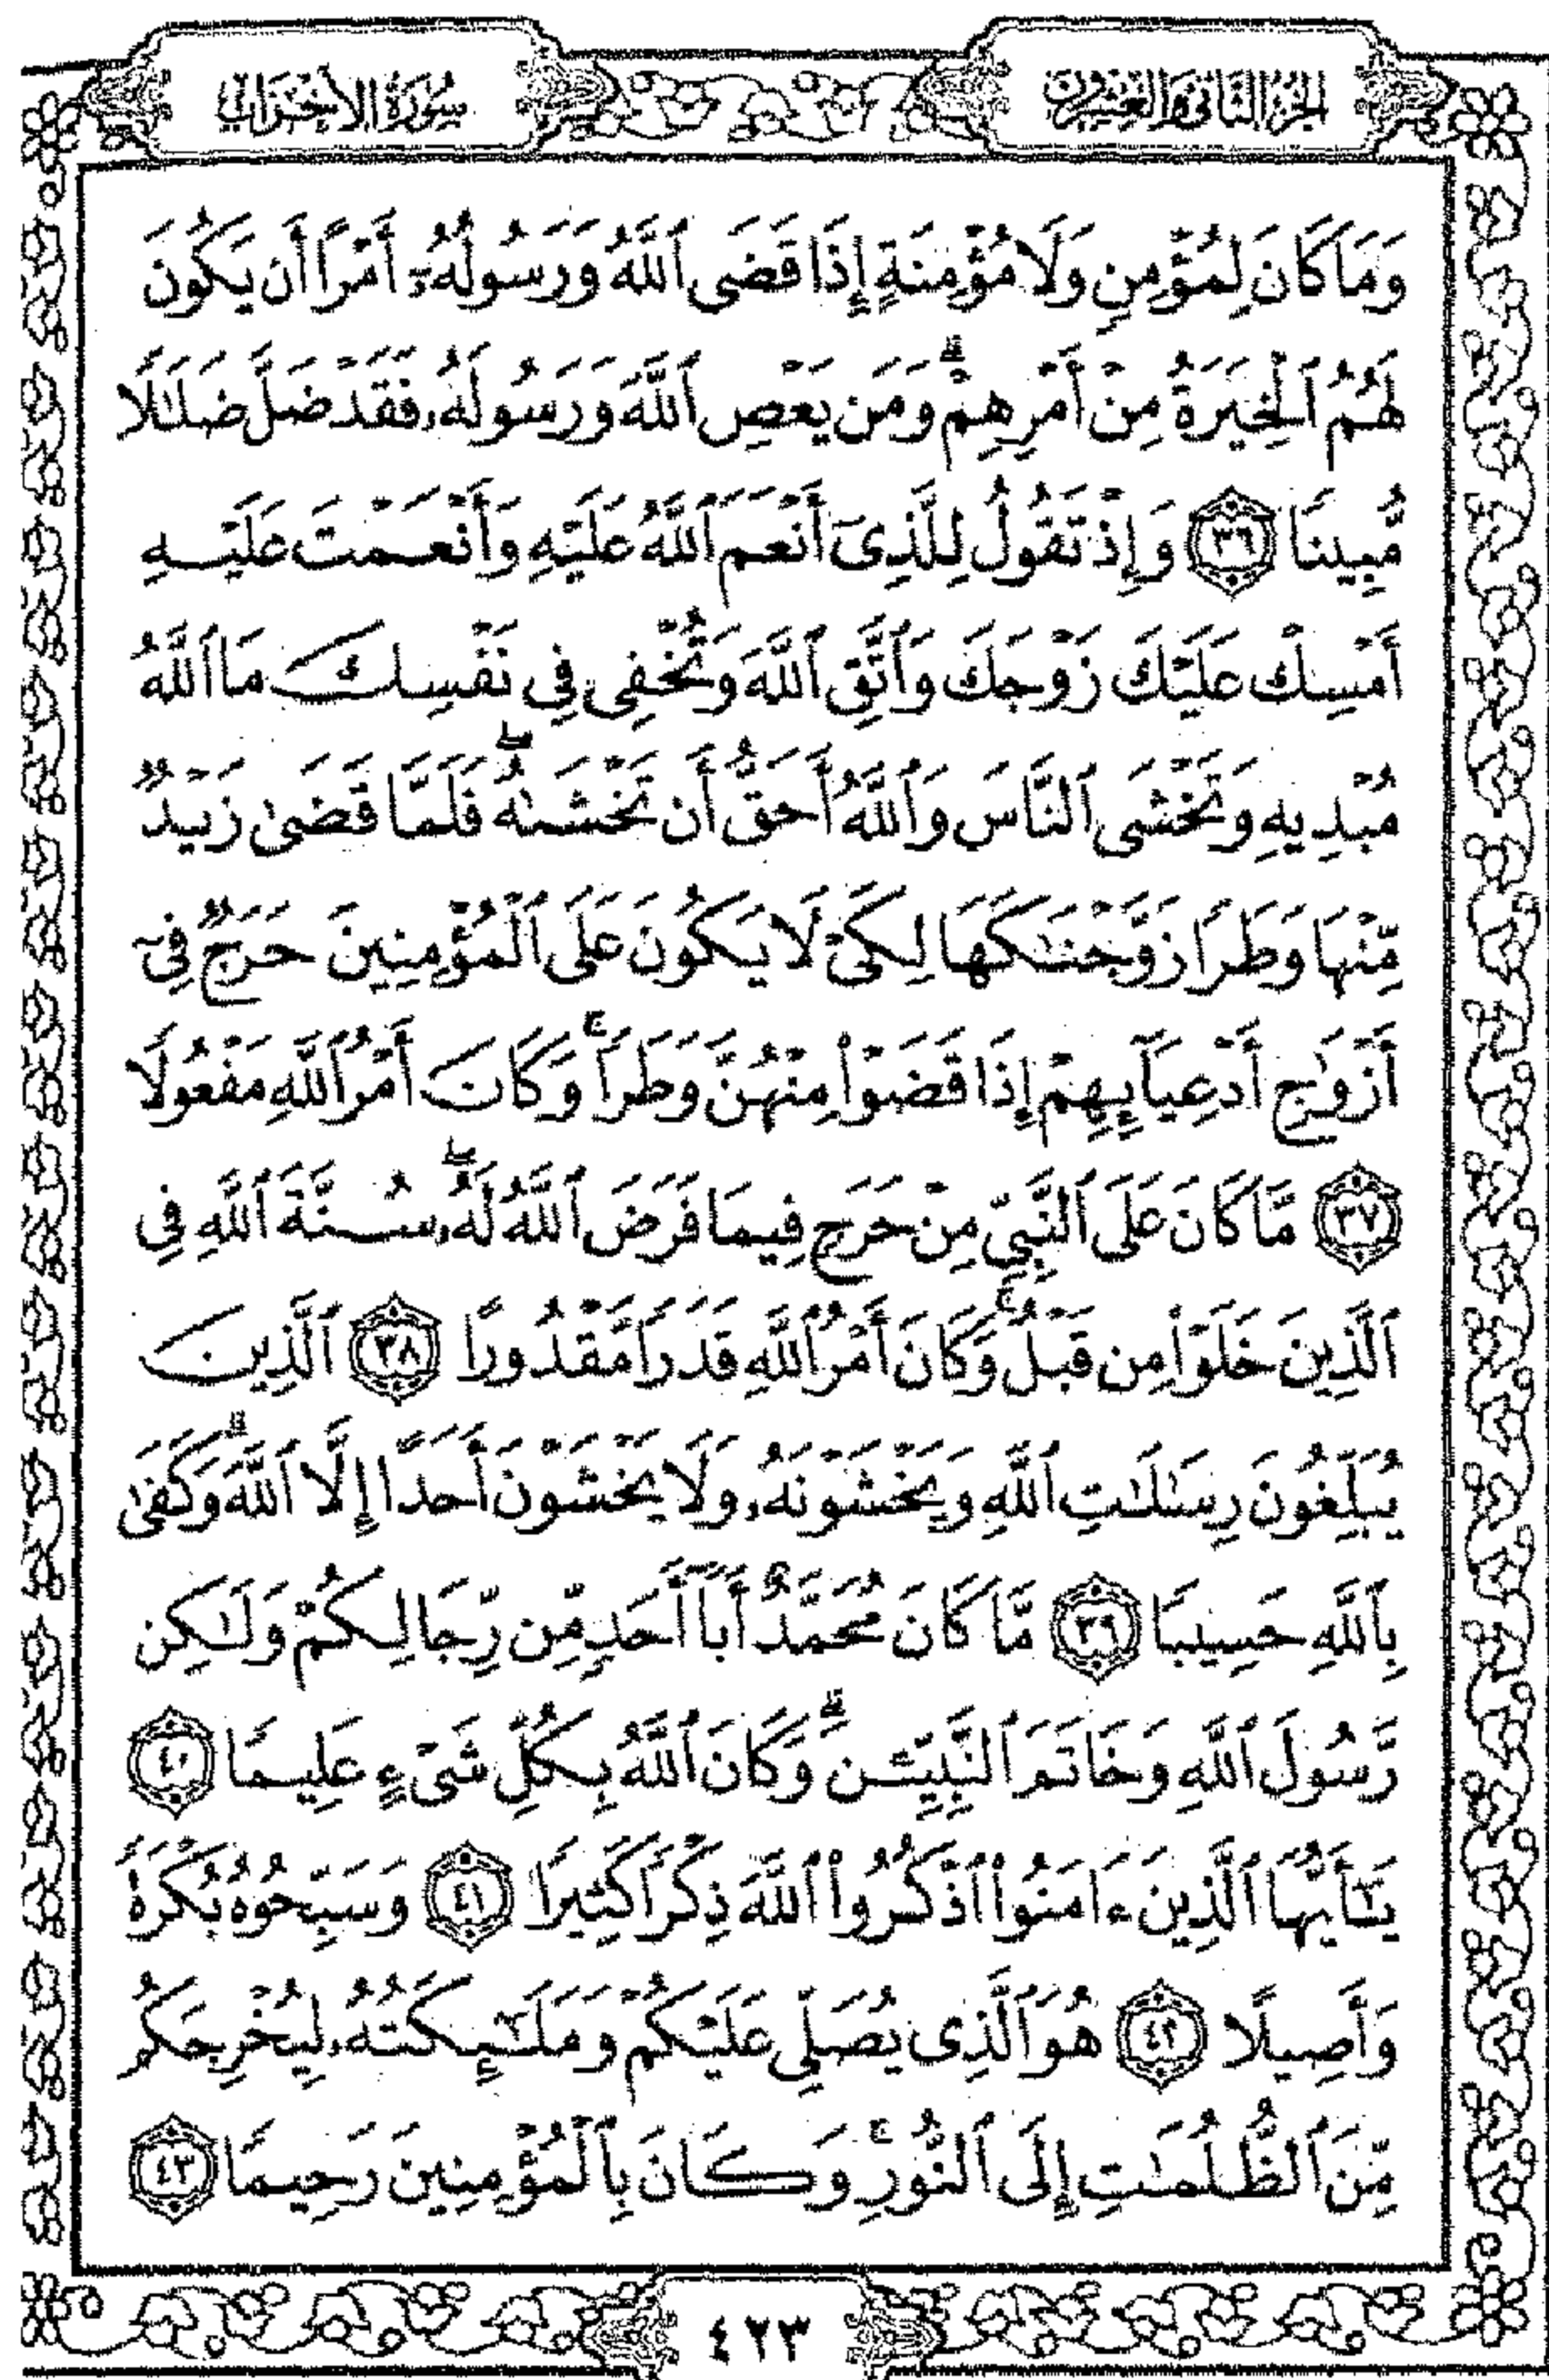 الجزء الثاني والعشرون
سورة الأحزاب
وَمَا كَانَ لِمُؤْمِنٍ وَلَا مُؤْمِنَةٍ إِذَا قَضَى ٱللَّهُ وَرَسُولُهُۥٓ أَمْرًا أَن يَكُونَ
لَهُمُ ٱلْخِيَرَةُ مِنْ أَمْرِهِمْ ۗ وَمَن يَعْصِ ٱللَّهَ وَرَسُولَهُۥ فَقَدْ ضَلَّ ضَلَـٰلًا
مُّبِينًا ٣٦ وَإِذْ تَقُولُ لِلَّذِىٓ أَنْعَمَ ٱللَّهُ عَلَيْهِ وَأَنْعَمْتَ عَلَيْهِ
أَمْسِكْ عَلَيْكَ زَوْجَكَ وَٱتَّقِ ٱللَّهَ وَتُخْفِى فِى نَفْسِكَ مَا ٱللَّهُ
مُبْدِيهِ وَتَخْشَى ٱلنَّاسَ وَٱللَّهُ أَحَقُّ أَن تَخْشَىٰهُ ۖ فَلَمَّا قَضَىٰ زَيْدٌ
مِّنْهَا وَطَرًا زَوَّجْنَـٰكَهَا لِكَىْ لَا يَكُونَ عَلَى ٱلْمُؤْمِنِينَ حَرَجٌ فِىٓ
أَزْوَٰجِ أَدْعِيَآئِهِمْ إِذَا قَضَوْا۟ مِنْهُنَّ وَطَرًا ۚ وَكَانَ أَمْرُ ٱللَّهِ مَفْعُولًا
٣٧ مَّا كَانَ عَلَى ٱلنَّبِىِّ مِنْ حَرَجٍ فِيمَا فَرَضَ ٱللَّهُ لَهُۥ ۖ سُنَّةَ ٱللَّهِ فِى
ٱلَّذِينَ خَلَوْا۟ مِن قَبْلُ ۚ وَكَانَ أَمْرُ ٱللَّهِ قَدَرًا مَّقْدُورًا ٣٨ ٱلَّذِينَ
يُبَلِّغُونَ رِسَـٰلَـٰتِ ٱللَّهِ وَيَخْشَوْنَهُۥ وَلَا يَخْشَوْنَ أَحَدًا إِلَّا ٱللَّهَ ۗ وَكَفَىٰ
بِٱللَّهِ حَسِيبًا ٣٩ مَّا كَانَ مُحَمَّدٌ أَبَآ أَحَدٍ مِّن رِّجَالِكُمْ وَلَـٰكِن
رَّسُولَ ٱللَّهِ وَخَاتَمَ ٱلنَّبِيِّـۧنَ ۗ وَكَانَ ٱللَّهُ بِكُلِّ شَىْءٍ عَلِيمًا ٤٠
يَـٰٓأَيُّهَا ٱلَّذِينَ ءَامَنُوا۟ ٱذْكُرُوا۟ ٱللَّهَ ذِكْرًا كَثِيرًا ٤١ وَسَبِّحُوهُ بُكْرَةً
وَأَصِيلًا ٤٢ هُوَ ٱلَّذِى يُصَلِّى عَلَيْكُمْ وَمَلَـٰٓئِكَتُهُۥ لِيُخْرِجَكُم
مِّنَ ٱلظُّلُمَـٰتِ إِلَى ٱلنُّورِ ۚ وَكَانَ بِٱلْمُؤْمِنِينَ رَحِيمًا ٤٣
٤٢٣